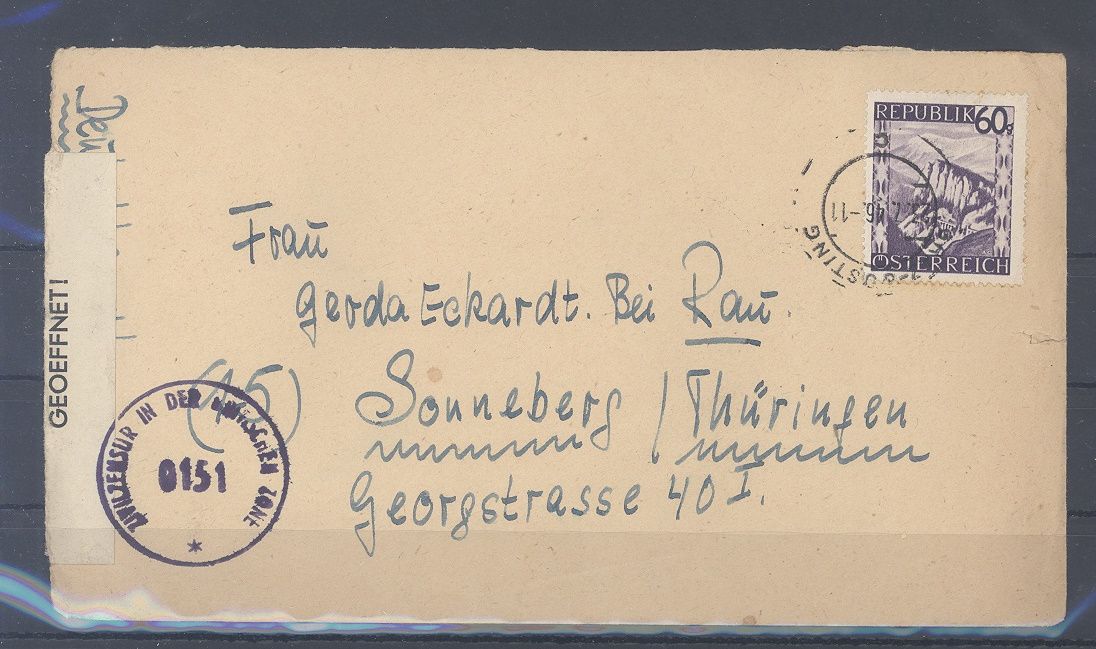 REPUBLIK 60g
ÖSTERREICH
46.-11
Frau
Gerda Eckardt. Bei Rau.
(15) Sonneberg / Thüringen
Georgstrasse 40 I.
GEOEFFNET!
ZIVILZENSUR IN DER BRITISCHEN ZONE
0151